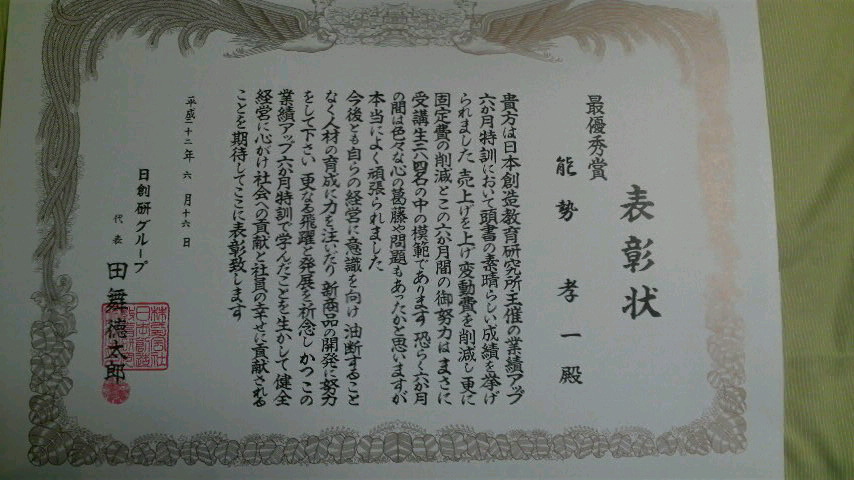 表彰状
最優秀賞
能勢孝一殿
貴方は日本創造教育研究所主催の業績アップ
六か月特訓において頭書の素晴らしい成績を挙げ
られました 売上げを上げ 変動費を削減し 更に
固定費の削減とこの六か月間の御努力は まさに
受講生二八四名の中の模範であります 恐らく六か月
の間は色々な心の葛藤や問題もあったかと思いますが
本当によく頑張られました
今後とも自らの経営に意識を向け 油断すること
なく人材の育成に力を注いだり 新商品の開発に努力
をして下さい 更なる飛躍と発展を祈念し かつこの
業績アップ六か月特訓で学んだことを生かして 健全
経営に心がけ社会への貢献と社員の幸せに貢献される
ことを期待してここに表彰致します
平成二十二年六月十六日
日創研グループ
代表 田舞徳太郎